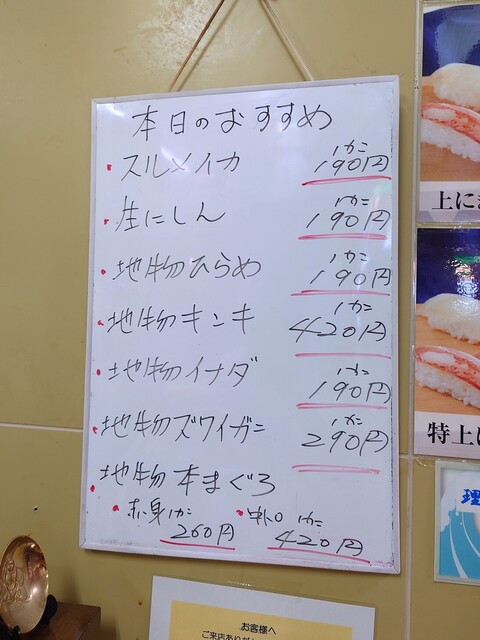 本日のおすすめ
・スルメイカ 1カン 190円
・生にしん 1カン 190円
・地物ひらめ 1カン 190円
・地物キンキ 1カン 420円
・地物イナダ 1カン 190円
・地物ズワイガニ 1カン 290円
・地物本まぐろ
・赤身1カン 260円 ・中トロ 1カン 420円
上に
特上に
理
お客様へ
ご来店あり